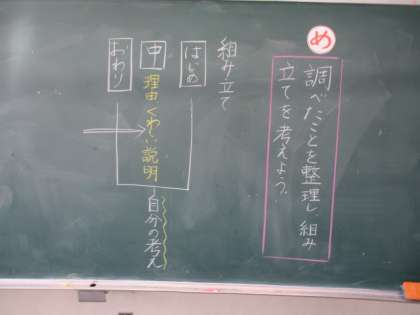 め
調べたことを整理し、組み
立てを考えよう。
組み立て
はじめ
中
理由 くわしい説明
おわり
自分の考え